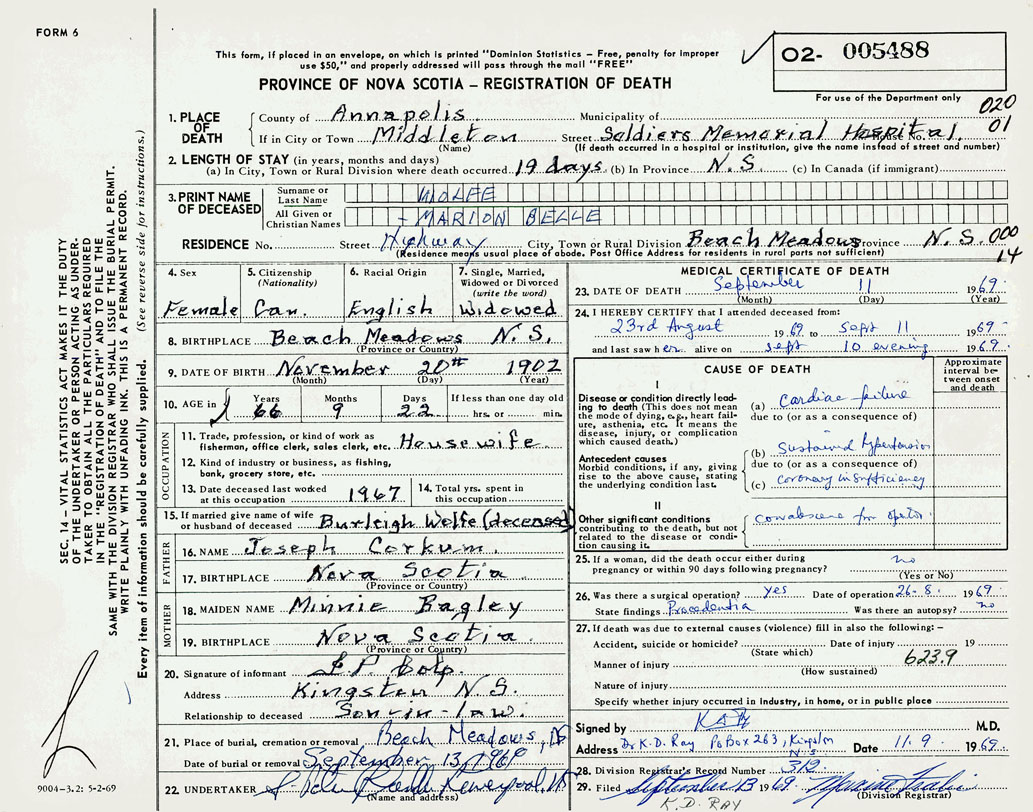 FORM 6
This form, if placed in an envelope, on which is printed "Dominion Statistics – Free, penalty for improper
use $50," and properly addressed will pass through the mail "FREE"
PROVINCE OF NOVA SCOTIA – REGISTRATION OF DEATH
02- 005488
For use of the Department only
020
01
1. PLACE OF DEATH
County of Annapolis Municipality of
If in City or Town Middleton Street Soldiers Memorial Hospital House No.
(Name) (If death occurred in a hospital or institution, give the name instead of street and number)
2. LENGTH OF STAY (in years, months and days)
(a) In City, Town or Rural Division where death occurred 19 days (b) In Province N.S. (c) In Canada (if immigrant)
3. PRINT NAME OF DECEASED
Surname or Last Name WOLFE
All Given or Christian Names - MARION BELLE
RESIDENCE No. Street Highway City, Town or Rural Division Beach Meadows Province N.S. 000
14
(Residence means usual place of abode. Post Office Address for residents in rural parts not sufficient)
4. Sex
Female
5. Citizenship (Nationality)
Can.
6. Racial Origin
English
7. Single, Married, Widowed or Divorced (write the word)
Widowed
8. BIRTHPLACE Beach Meadows N.S.
(Province or Country)
9. DATE OF BIRTH November 20th 1902
(Month) (Day) (Year)
10. AGE in Years Months Days If less than one day old
66 9 22 hrs. or min.
OCCUPATION
11. Trade, profession, or kind of work as
fisherman, office clerk, sales clerk, etc. Housewife
12. Kind of industry or business, as fishing,
bank, grocery store, etc.
13. Date deceased last worked
at this occupation 1967
14. Total yrs. spent in
this occupation
15. If married give name of wife
or husband of deceased Burleigh Wolfe (deceased)
FATHER
16. NAME Joseph Corkum.
17. BIRTHPLACE Nova Scotia
(Province or Country)
MOTHER
18. MAIDEN NAME Minnie Bagley
19. BIRTHPLACE Nova Scotia
(Province or Country)
20. Signature of informant
Address Kingston N.S.
Relationship to deceased Son-in-law.
21. Place of burial, cremation or removal Beach Meadows, NS
Date of burial or removal September 13, 1969
22. UNDERTAKER Liverpool, NS
(Name and address)
MEDICAL CERTIFICATE OF DEATH
23. DATE OF DEATH September 11 1969
(Month) (Day) (Year)
24. I HEREBY CERTIFY that I attended deceased from:
23rd August 1969 to Sept 11 1969
and last saw her alive on Sept 10 evening 1969
CAUSE OF DEATH
Approximate interval between onset and death
I
Disease or condition directly leading
to death (This does not mean
the mode of dying, e.g., heart failure,
asthenia, etc. It means the
disease, injury, or complication
which caused death.)
(a) Cardiac failure
due to (or as a consequence of)
Antecedent causes
Morbid conditions, if any, giving
rise to the above cause, stating
the underlying condition last.
(b) Sustained hypertension
due to (or as a consequence of)
(c) Coronary insufficiency
II
Other significant conditions
contributing to the death, but not
related to the disease or condition
causing it.
25. If a woman, did the death occur either during
pregnancy or within 90 days following pregnancy? no
(Yes or No)
26. Was there a surgical operation? yes Date of operation 26-8. 1969
State findings Procedentia Was there an autopsy? no
27. If death was due to external causes (violence) fill in also the following: –
Accident, suicide or homicide? Date of injury 19
(State which)
Manner of injury 623.9
(How sustained)
Nature of injury
Specify whether injury occurred in Industry, in home, or in public place
Signed by M.D.
Address Dr K.D. Ray PO Box 263, Kingston N.S. Date 11.9. 1969.
28. Division Registrar's Record Number 312
29. Filed September 13 1969
(Division Registrar)
K.D. RAY
SEC. 14 – VITAL STATISTICS ACT MAKES IT THE DUTY
OF THE UNDERTAKER OR PERSON ACTING AS UNDER-
TAKER TO OBTAIN ALL THE PARTICULARS REQUIRED
IN THE "REGISTRATION OF DEATH" AND TO FILE THE
SAME WITH THE DIVISION REGISTRAR WHO SHALL ISSUE THE BURIAL PERMIT.
WRITE PLAINLY WITH UNFADING INK. THIS IS A PERMANENT RECORD.
Every item of information should be carefully supplied. (See reverse side for instructions.)
9004-3.2: 5-2-69